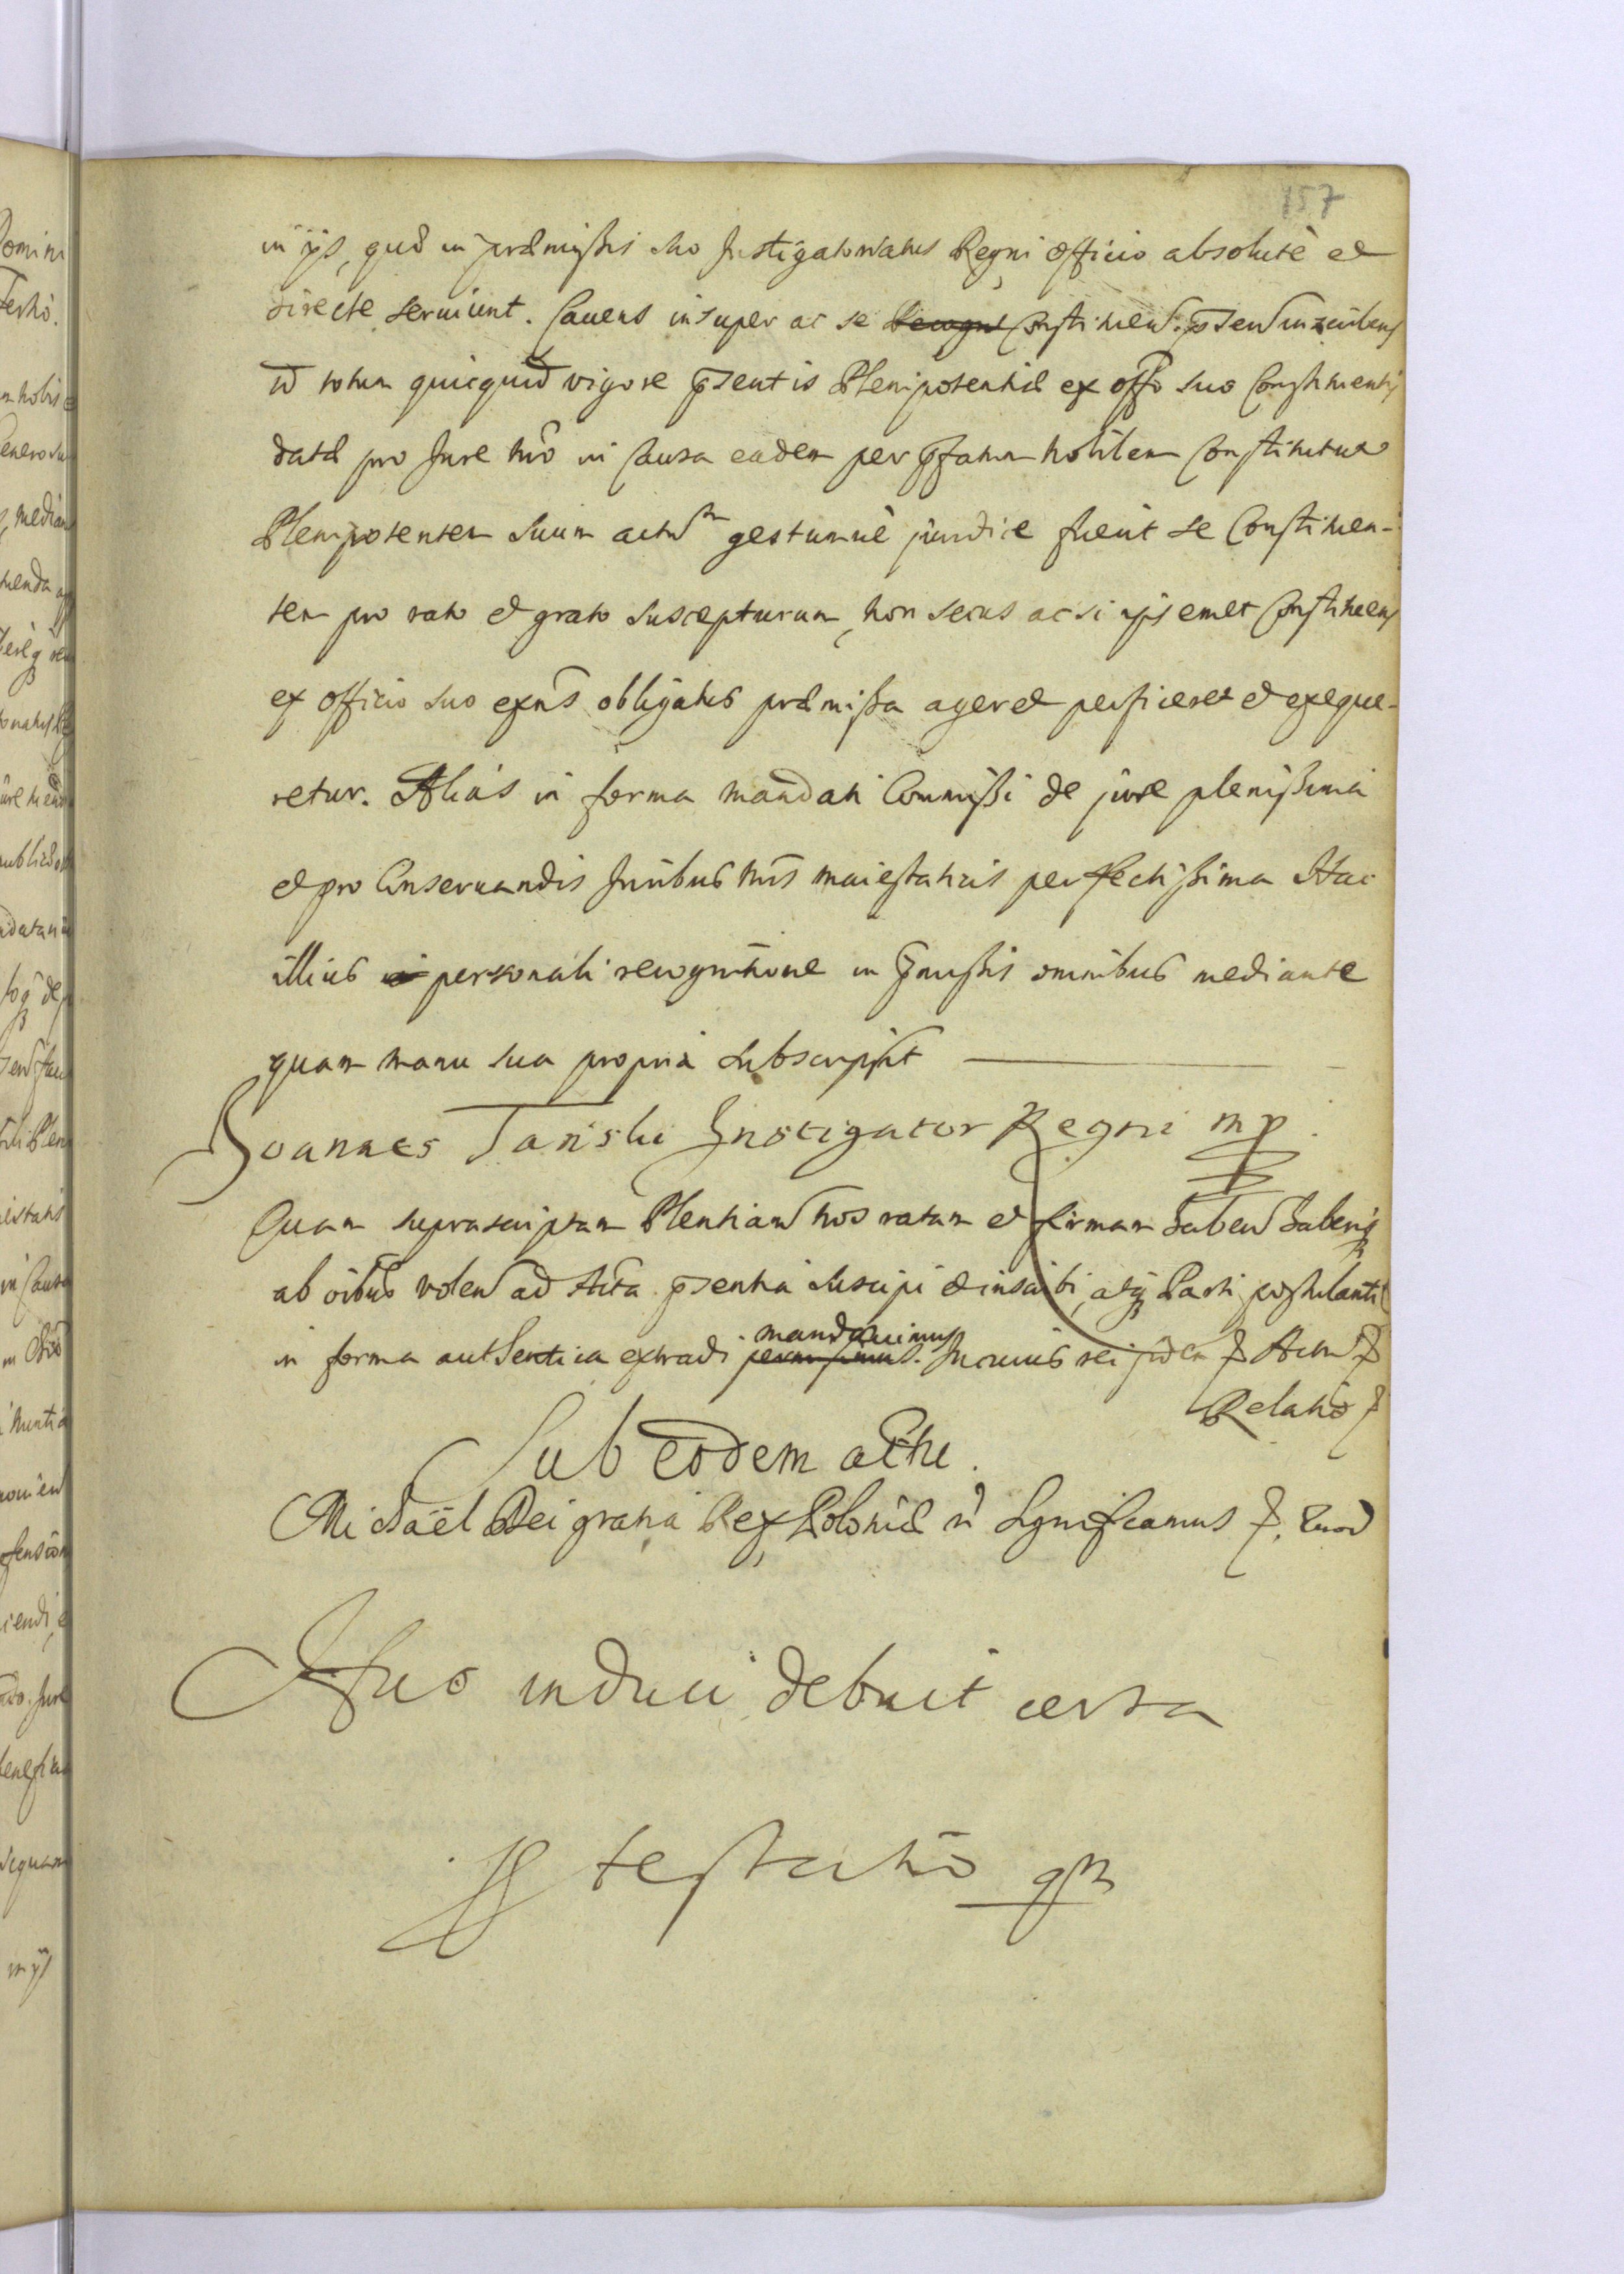 157
in ijs, quæ in præmissis suo Instigatoriatus Regni officio absolutè et
directe seruiunt. Cauens insuper ac se Recogn Constituen. pñsen inscribens
id totum quicquid vigore pñsentis Plenipotentiæ ex offo suo Constituentis
datæ pro Jure nro in Causa eadem per pfatum nobilem Constitutum
Plenipotentem suum actum gestumuè juridice fuerit se Constituen-
tem pro rato et grato suscepturum, non secus ac si ipsemet Constituens
ex officio suo exns obligatus præmissa ageret perficeret et exeque-
retur. Aliàs in forma mandati Commissi de jure plenissima
et pro Conseruandis Juribus nris maiestaticis perfectissima Hac
illius personali recognitione in pmissis omnibus mediante
quam manu sua propria subscripsit
Joannes Tański Instigator Regni mp
Quam suprascriptam Plentiam nos ratam et firmam haben haberiq
ab oibus volen ad Acta pñsentia suscipi et inscribi, atq Parti postulanti
in forma authentica extradi permisimus. mandauimus In cuius rei fidem Actum
Relatio
Sub eodem actu.
Michaël Dei gratia Rex Poloniæ Significamus Quod
Huc induci debuit certa
testatio